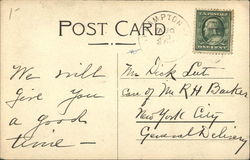 POST CARD
We will
give you
a good
time —
Mr Dick
Care of Mr R H Barker
New York City
General Delivery
ONE CENT